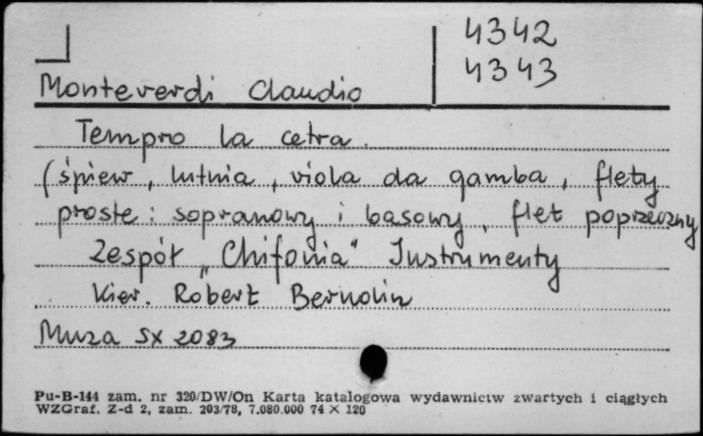 4342
4343
Monteverdi Claudio
Tempro la cetra.
(śpiew, lutnia, viola da gamba, flety
proste: sopranowy i basowy, flet poprzeczny
Zespół „Chifonia" Instrumenty
Kier. Robert Bernolin
Muza SX 2083
Pu-B-144 zam. nr 320/DW/On Karta katalogowa wydawnictw zwartych i ciągłych
WZGraf. Z-d 2, zam. 203/78, 7.080.000 74 × 120